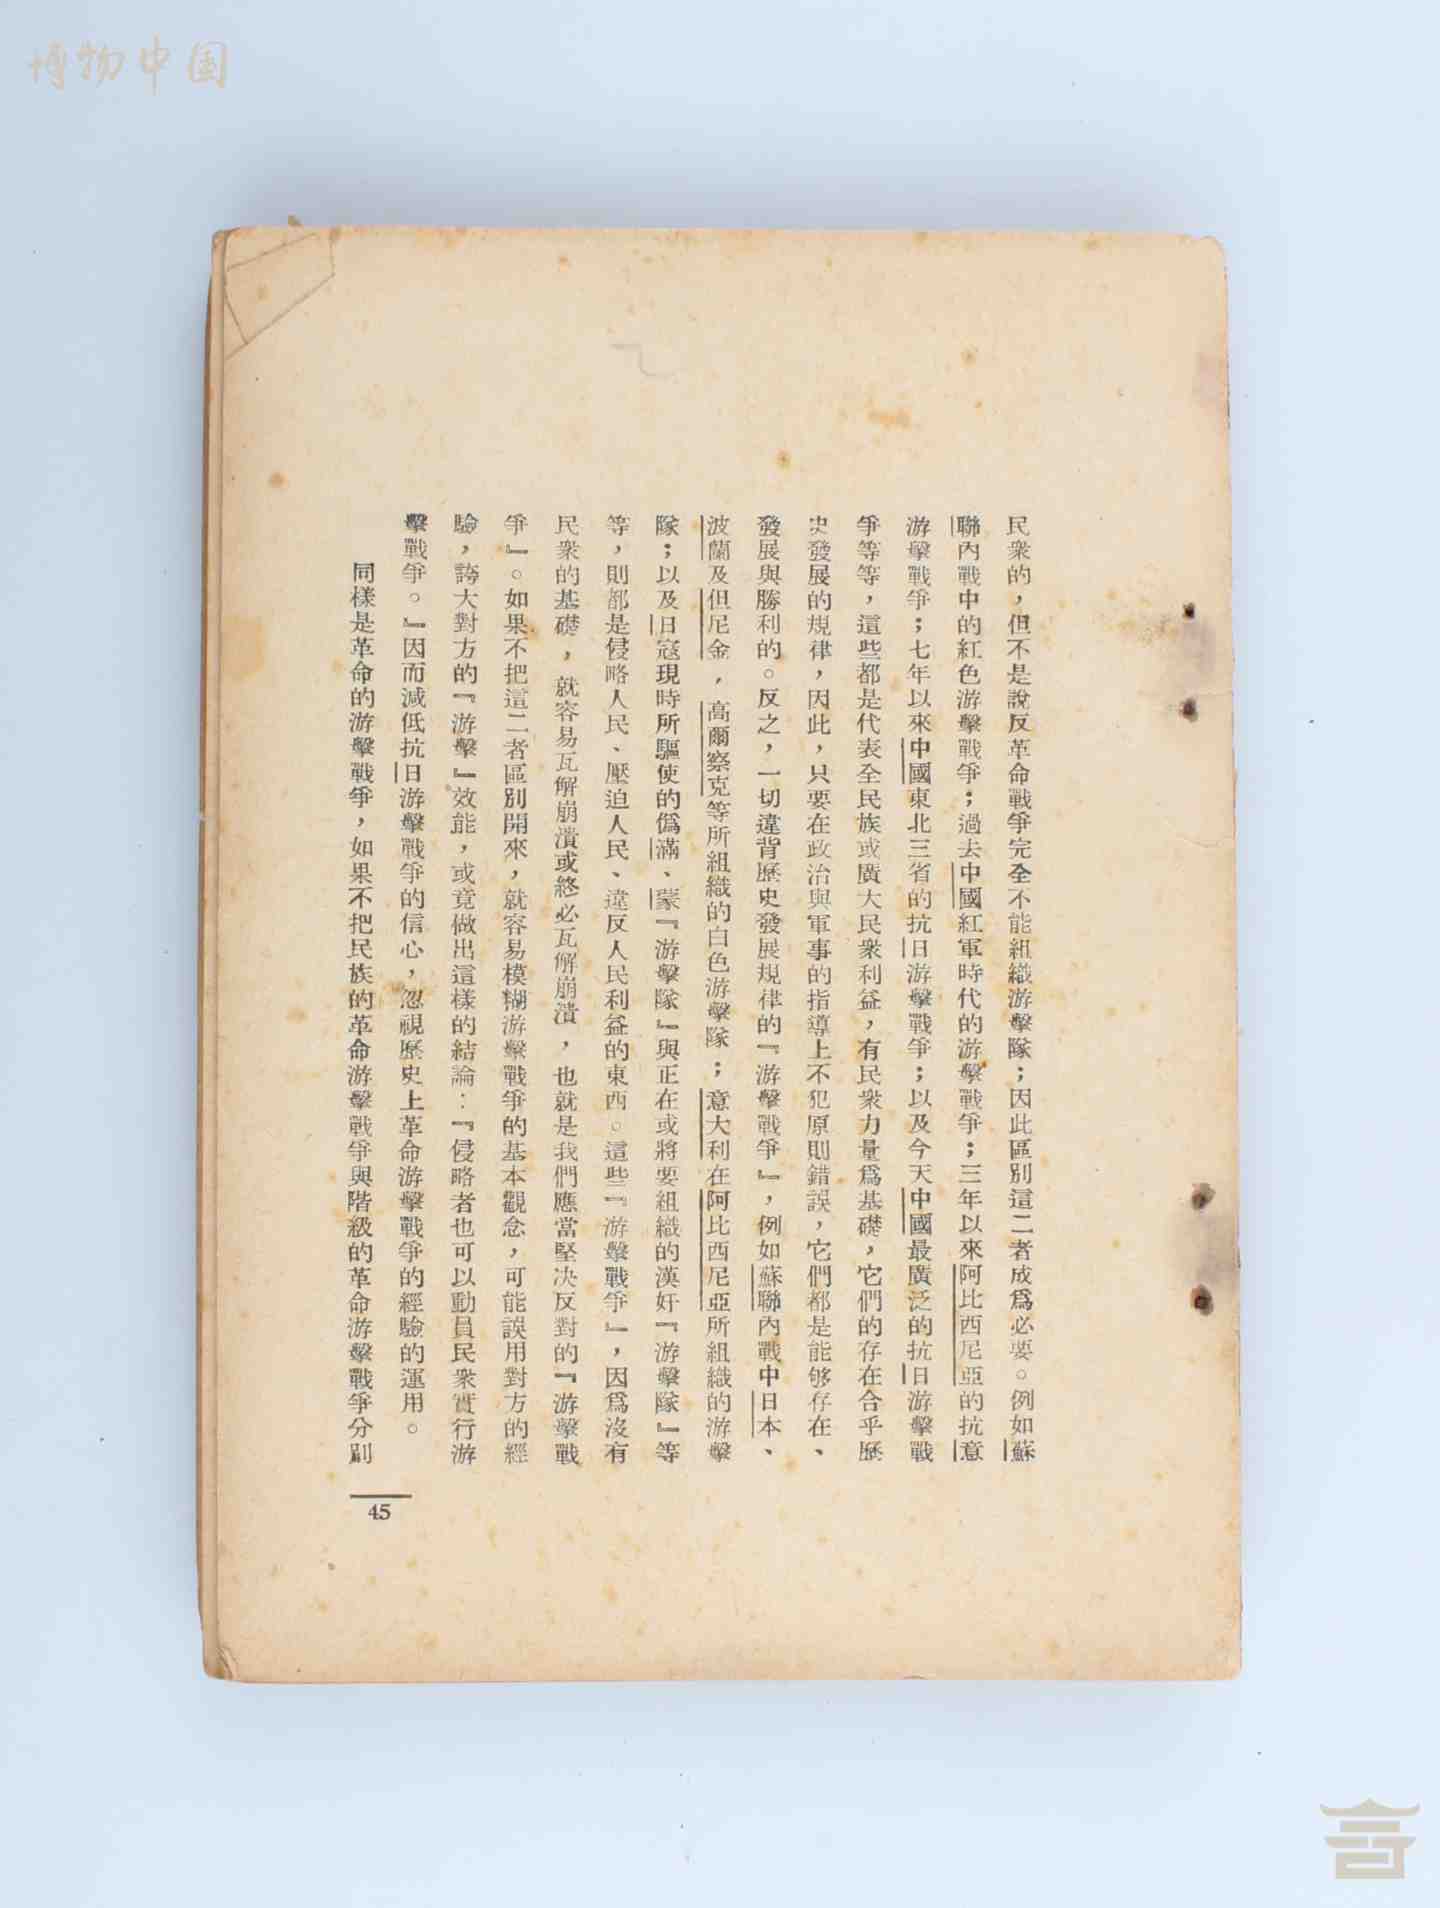 博物中国
民衆的，但不是說反革命戰爭完全不能組織游擊隊；因此區別這二者成爲必要。例如蘇
聯內戰中的紅色游擊戰爭；過去中國紅軍時代的游擊戰爭；三年以來阿比西尼亞的抗意
游擊戰爭；七年以來中國東北三省的抗日游擊戰爭；以及今天中國最廣泛的抗日游擊戰
爭等等，這些都是代表全民族或廣大民衆利益，有民衆力量爲基礎，它們的存在合乎歷
史發展的規律，因此，只要在政治與軍事的指導上不犯原則錯誤，它們都是能够存在、
發展與勝利的。反之，一切違背歷史發展規律的『游擊戰爭』，例如蘇聯內戰中日本、
波蘭及但尼金，高爾察克等所組織的白色游擊隊；意大利在阿比西尼亞所組織的游擊
隊；以及日寇現時所驅使的僞滿、蒙『游擊隊』與正在或將要組織的漢奸『游擊隊』等
等，則都是侵略人民、壓迫人民、違反人民利益的東西。這些『游擊戰爭』，因爲沒有
民衆的基礎，就容易瓦解崩潰或終必瓦解崩潰，也就是我們應當堅決反對的『游擊戰
爭』。如果不把這二者區別開來，就容易模糊游擊戰爭的基本觀念，可能誤用對方的經
驗，誇大對方的『游擊』效能，或竟做出這樣的結論：『侵略者也可以動員民衆實行游
擊戰爭。』因而減低抗日游擊戰爭的信心，忽視歷史上革命游擊戰爭的經驗的運用。
同樣是革命的游擊戰爭，如果不把民族的革命游擊戰爭與階級的革命游擊戰爭分別
45